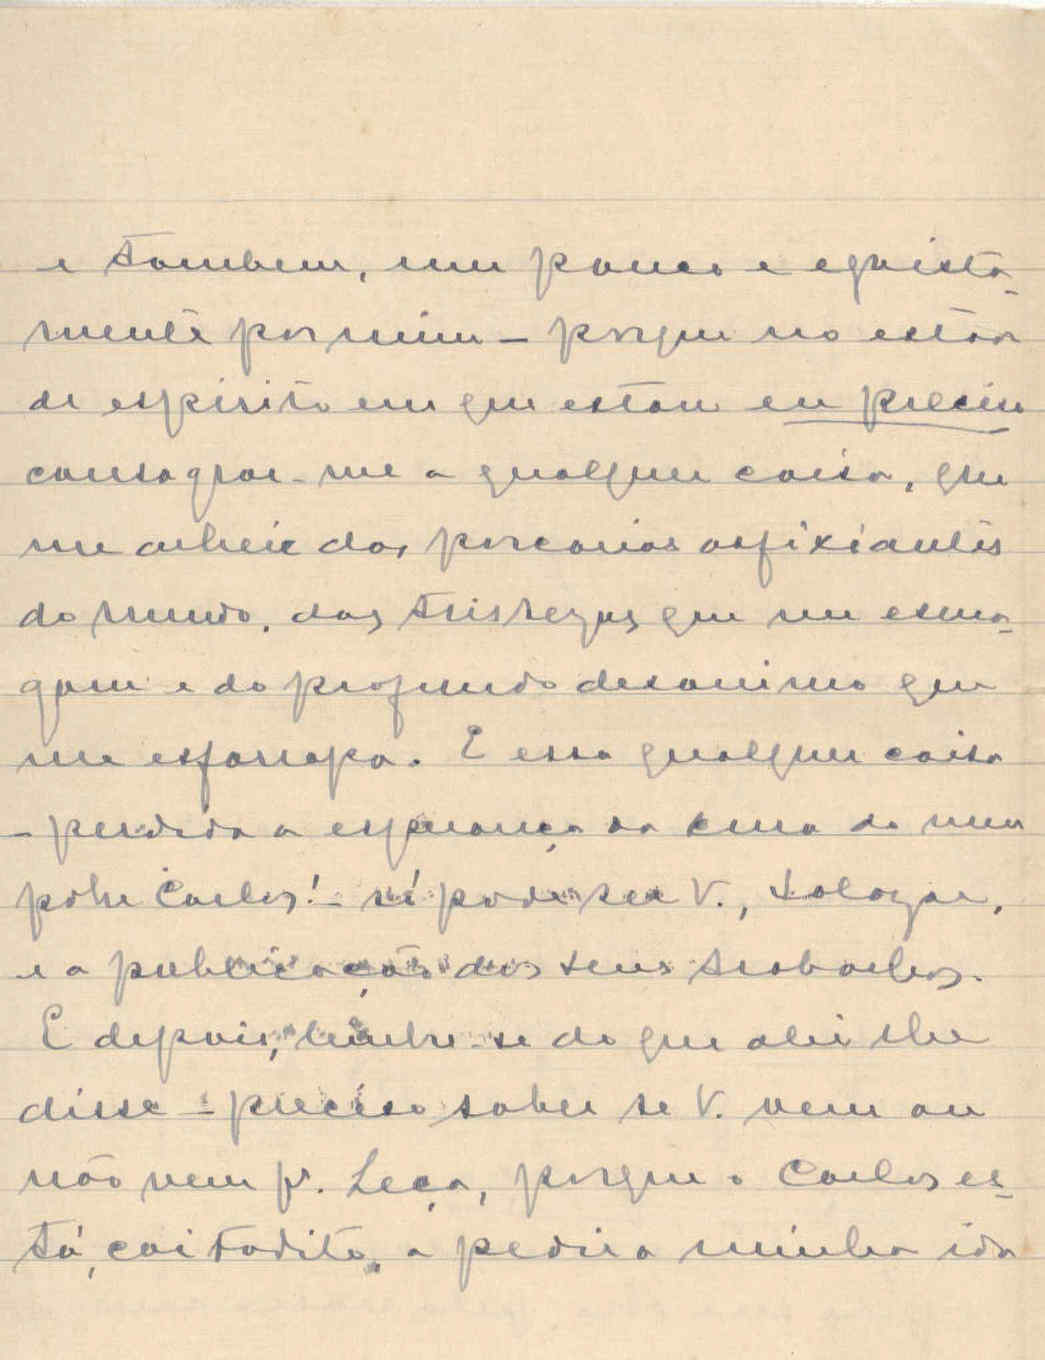 e tambem, um pouco e egoista-
mente por mim – porque no estado
de espirito em que estou eu preciso
consagrar-me a qualquer coisa, que
me alheie das porcarias asfixiantes
do mundo, das tristezas que me esma-
gam e do profundo desanimo que
me esfarrapa. E essa qualquer coisa
– perdida a esperança da cura do meu
pobre Carlos! – só pode ser V.,
e a publicação dos seus trabalhos.
E depois, lembre-se do que ahi lhe
disse – preciso saber se V. vem ou
não vem p.ª Leça, porque o Carlos es-
tá, coitadito, a pedir a minha ida